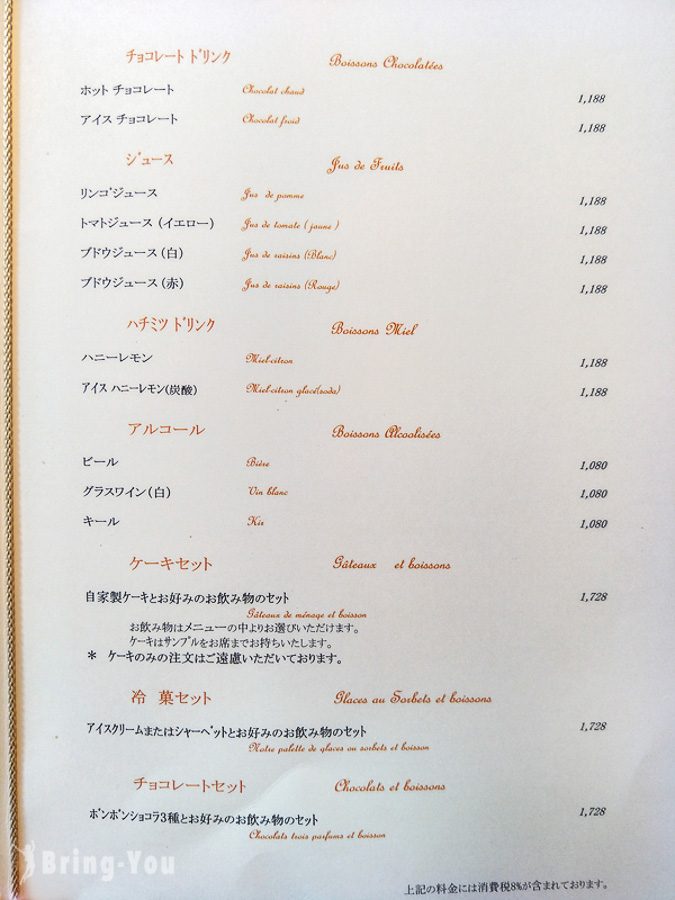 チョコレート ドリンク Boissons Chocolatées
ホット チョコレート Chocolat chaud 1,188
アイス チョコレート Chocolat froid 1,188
ジュース Jus de Fruits
リンゴジュース Jus de pomme 1,188
トマトジュース (イエロー) Jus de tomate ( jaune ) 1,188
ブドウジュース (白) Jus de raisins (Blanc) 1,188
ブドウジュース (赤) Jus de raisins (Rouge) 1,188
ハチミツ ドリンク Boissons Miel
ハニーレモン Miel-citron 1,188
アイス ハニーレモン(炭酸) Miel-citron glacé(soda) 1,188
アルコール Boissons Alcoolisées
ビール Bière 1,080
グラスワイン (白) Vin blanc 1,080
キール Kir 1,080
ケーキセット Gâteaux et boissons
自家製ケーキとお好みのお飲み物のセット 1,728
Gâteaux de ménage et boisson
お飲み物はメニューの中よりお選びいただけます。
ケーキはサンプルをお席までお持ちいたします。
* ケーキのみの注文はご遠慮いただいております。
冷 菓セット Glaces au Sorbets et boissons
アイスクリームまたはシャーベットとお好みのお飲み物のセット 1,728
Notre palette de glaces ou sorbets et boisson
チョコレートセット Chocolats et boissons
ボンボンショコラ3種とお好みのお飲み物のセット 1,728
Chocolats trois parfums et boisson
上記の料金には消費税8%が含まれております。
Bring-You